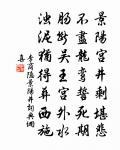 景陽宮井剩堪悲
不盡龍鸞誓死期
腸斷吳王宮外水
濁泥猶得葬西施
李商隱景陽井詞典網
喜